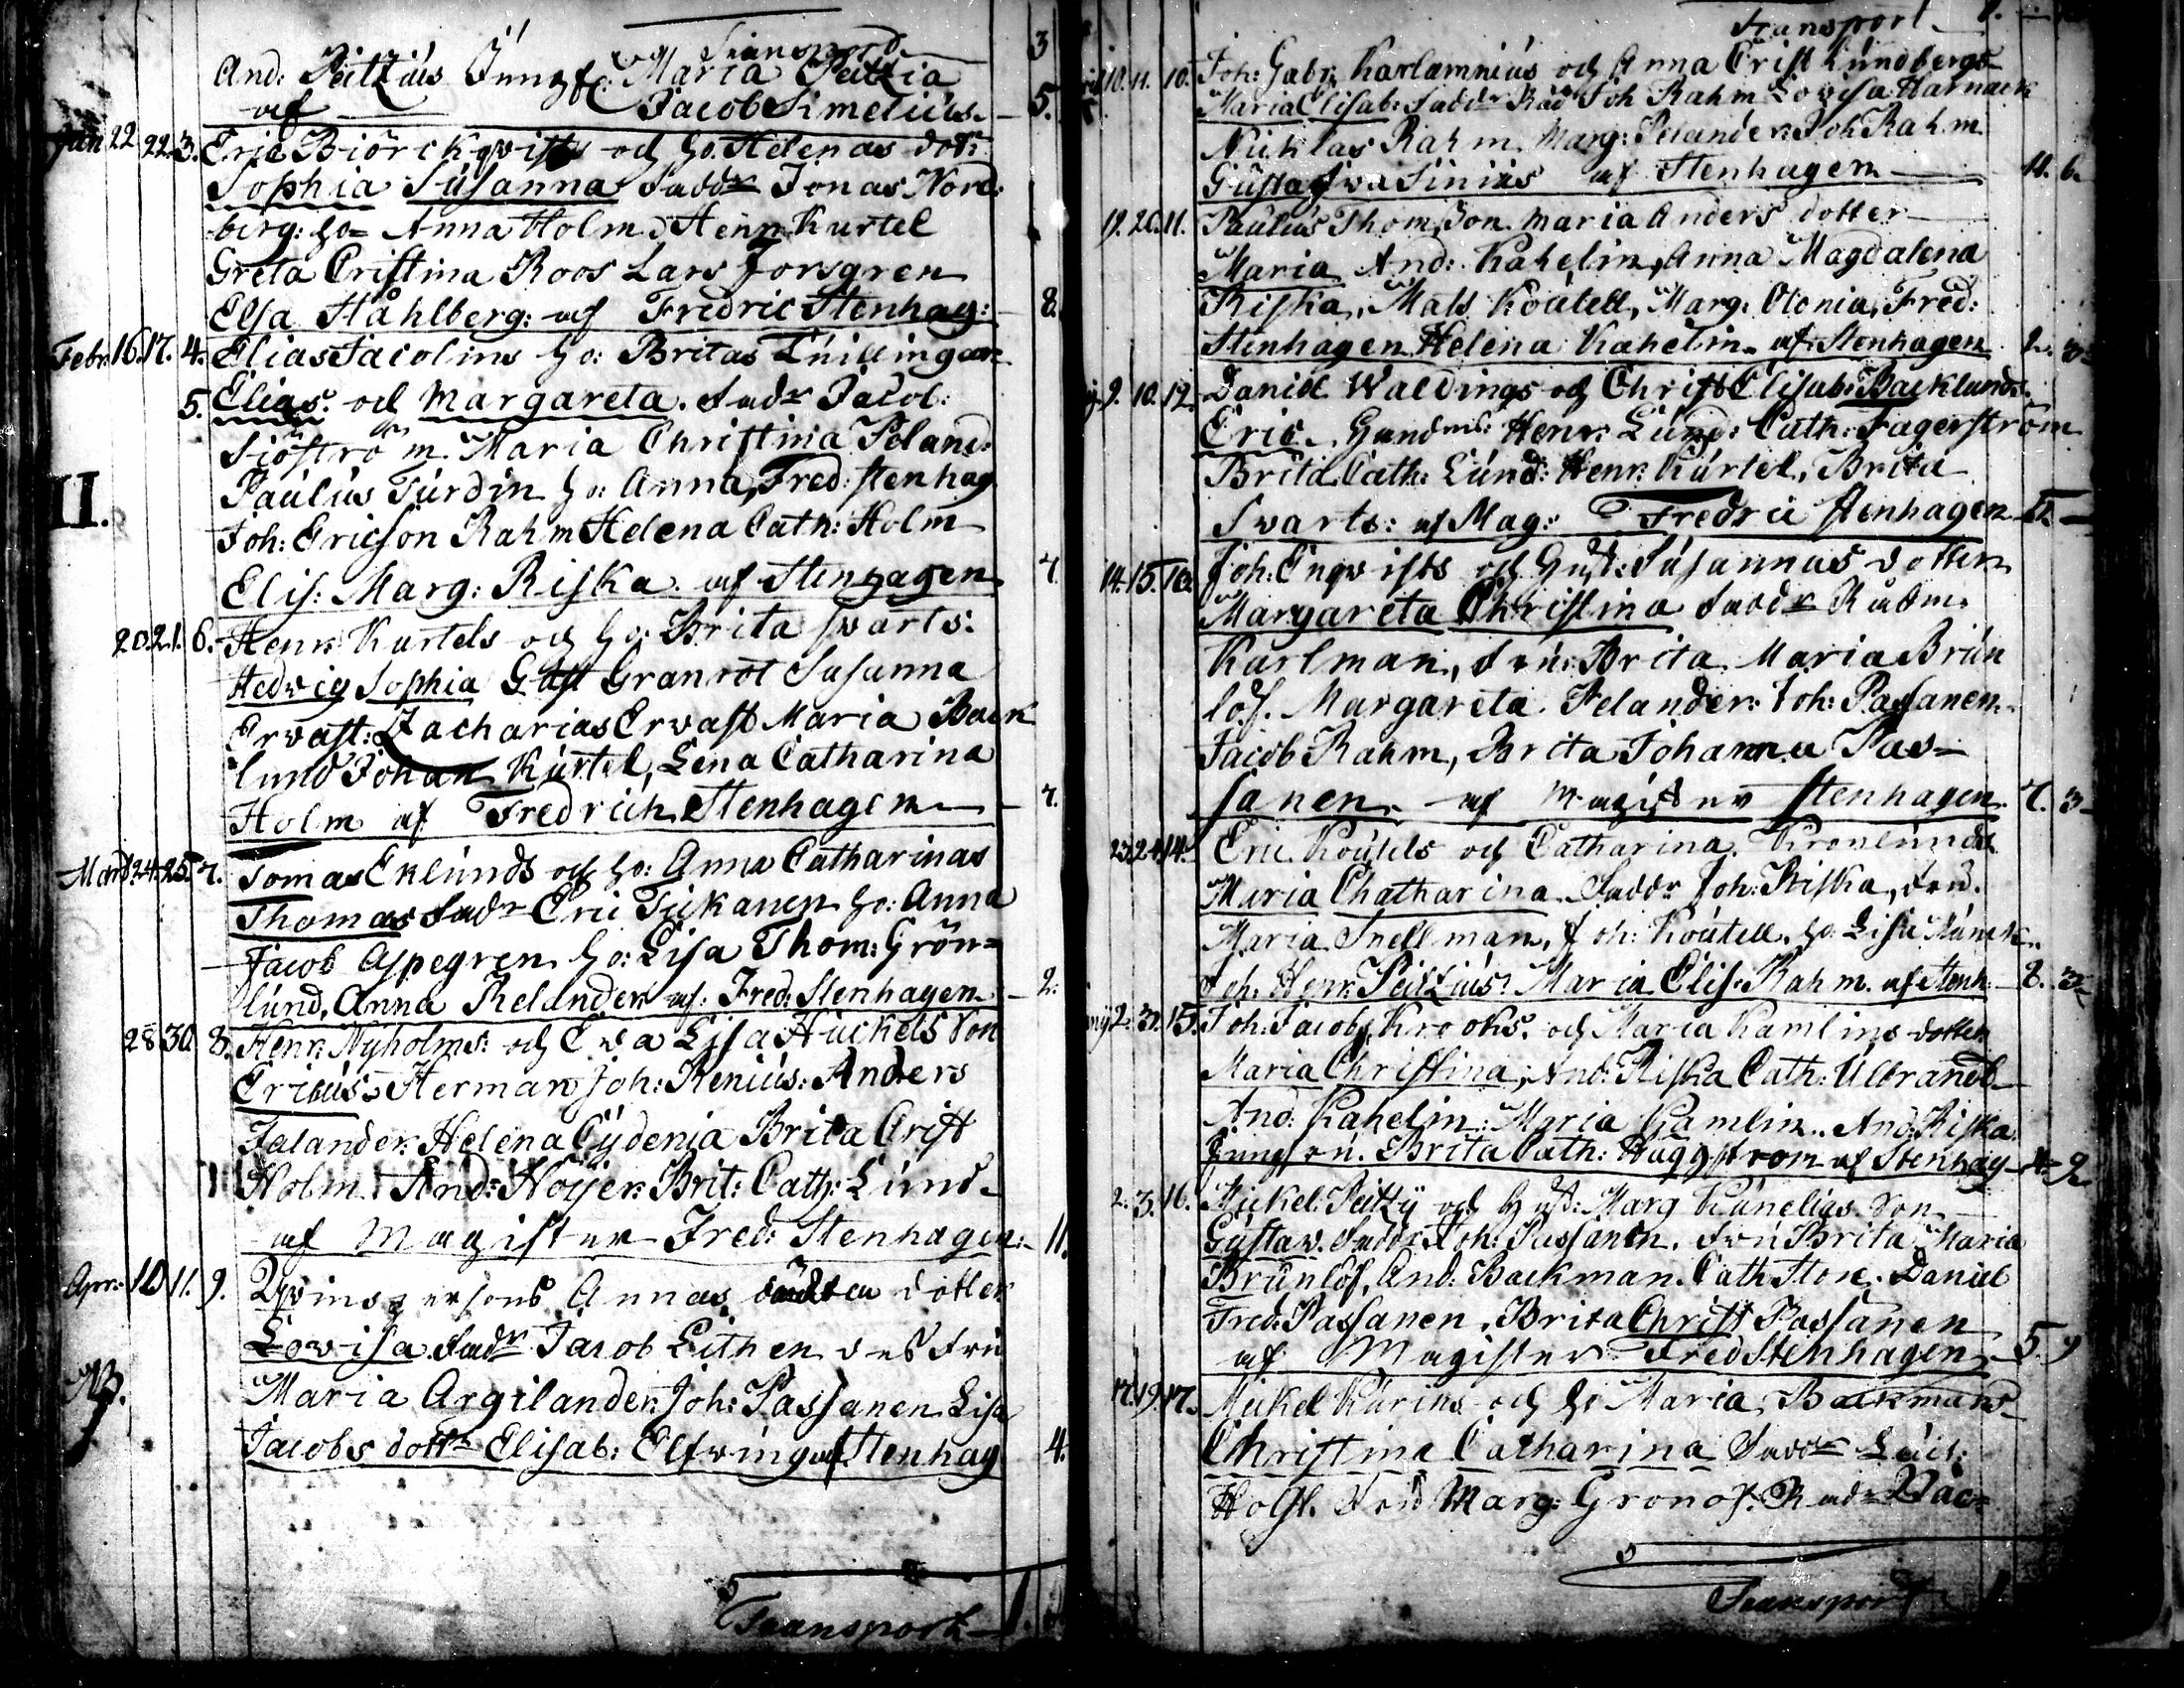 Transport
And: Peitzius Jungf: Maria Peitzia
af Jacob Simelius. 5.
Jan 22 22. 3. Eric Biörckqvists och ho. Helenas dot:
Sophia Susanna Faddr Jonas Nord:
berg: ho= Anna Holm. Henr. Kurtel
Greta Cristina Roos Lars Forsgren
Elsa Ståhlberg: af Fredric Stenhag: 8.
Febr: 16. 17. 4. Elias Jacolins ho: Britas Tvillingar
5. Elias. och Margareta. Fadr Jacob:
Siöström Maria Christina Peland:
Paulus Turdin ho: Anna, Fred: Stenhag
II.
Joh: Ericson Rahm Helena Cath: Holm
Elis: Marg: Riska af Stenhagen 7
20. 21. 6. Henr. Kurtels och ho: Brita Swarts:
Hedwig Sophia Gust Granrot Susanna
Erwast: Zacharias Erwast Maria Back
lund Johan Kurtel, Lena Catharina
Holm af Fredrich Stenhagen 7.
Mard: 24. 25. 7. Tomas Eklunds och ho: Anna Catharinas
Thomas Fadr Eric Tickanen ho: Anna
Jacob Aspegren ho: Lisa Thom: Grön=
lund, Anna Relander af: Fred: Stenhagen 2.
28 30. 8. Henr. Nyholms: och Ewa Lisa Huckels Son
Ericus. Herman Joh: Renius: Anders
Falander. Helena Cydenia Brita Crist
Holm. And: Höijer. Brit: Cath: Lund=
af Magister Fred: Stenhagen: 11.
Apr: 10 11. 9. Qwinspersons Annas dotter
Lowisa Fadr Jacob Lithen des Fru
NB.
Maria Argilander. Joh: Passanen Lisa
Jacobs dottr Elisab: Elfwing af Stenhag 4.
Transport
Transport
10. 11. 10. Joh: Gabr: Karlamnius och Anna Crist Lundbergs
Maria Elisab: Faddr Råd Joh Rahm Lowisa Harnack
Nicklas Rahm Marg: Pelander. Joh Rahm
Gustaf Wasinius af Stenhagen 11. 6.
19. 20. 11. Paulus Thom Son Maria Anders dotter
Maria And: Kahelin, Anna Magdalena
Riska, Mats Koutell, Marg: Otonia, Fred:
Stenhagen Helena Kahelin af Stenhagen 2.
9. 10. 12. Daniel Waldings och Christ Elisab: Backlunds
Eric. Henr: Lund: Cath: Fagerström
Brita Cath: Lund: Henr. Kurtel, Brita
Swarts: af Mag: Fredric Stenhagen
14. 15. Joh: Engwists och Hust: Susannas dotter
Margareta Christina Faddr Rådm:
Karlman, Fru: Brita Maria Brun
löf. Margareta Pelander: Joh: Passanen.
Jacob Rahm, Brita Johanna Pas=
sanen af Magister Stenhagen. 7. 3
23. 24. 14. Eric Koutels och Catharina Kronlunds
Maria Chatharina Faddr Joh: Riska, Fru.
Maria Snellman, Joh: Koutell, ho: Lisa Munck.
Joh: Henr: Peitzius: Maria Elis: Rahm af Stenh: 8. 3
2. 3. 15. Joh: Jacobs Krooks. och Maria Kamlins dotter
Maria Christina, And: Riska Cath: Ulbrandt
And: Kahelin: Maria Kamlin. And: Riska.
Brita Cath: Häggström af Stenhag
2. 3. 16. Mickel: Peitzy och Hust: Marg Kunelias Son
Gustaw. Faddr Joh: Passanen. Fru Brita Maria
Brunlöf, And: Backman. Cath Store. Daniel
Fred: Passanen, Brita Christ Passanen
af Magister Fred Stenhagen 5. 9
17. 19. 17. Mickel Kurins och ho Maria Backmans
Christina Catharina Faddr
Holst. Fru Marg: Gronof.
Transport